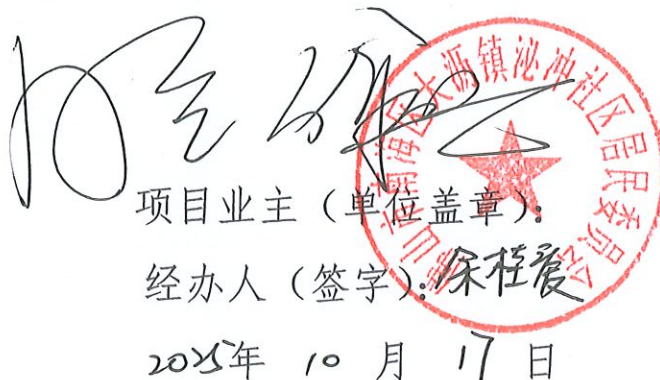 佛山市南海区大沥镇泌冲社区居民委员会
项目业主（单位盖章）：
经办人（签字）：余桂爱
2025年 10 月 17 日